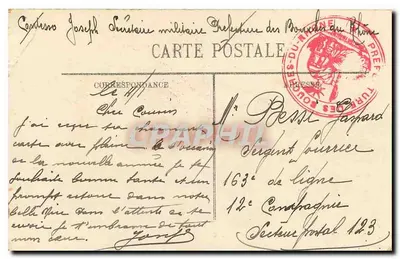 Centeso Joseph Secrétaire militaire Préfecture des Bouches du Rhône
CARTE POSTALE
CORRESPONDANCE
PREFECTURE DES BOUCHES-DU-RHONE
Cher Cousin
J'ai reçu ta
carte avec plaisir
de la nouvelle année je te
souhaite bonne santé et un
prompt retour dans notre
belle dans l'attente de te
revoir je t'embrasse de tout
mon cœur.
Joseph
Mr Besse Gaspard
Sergent fourrier
163e de ligne
12e Compagnie
Secteur postal 123